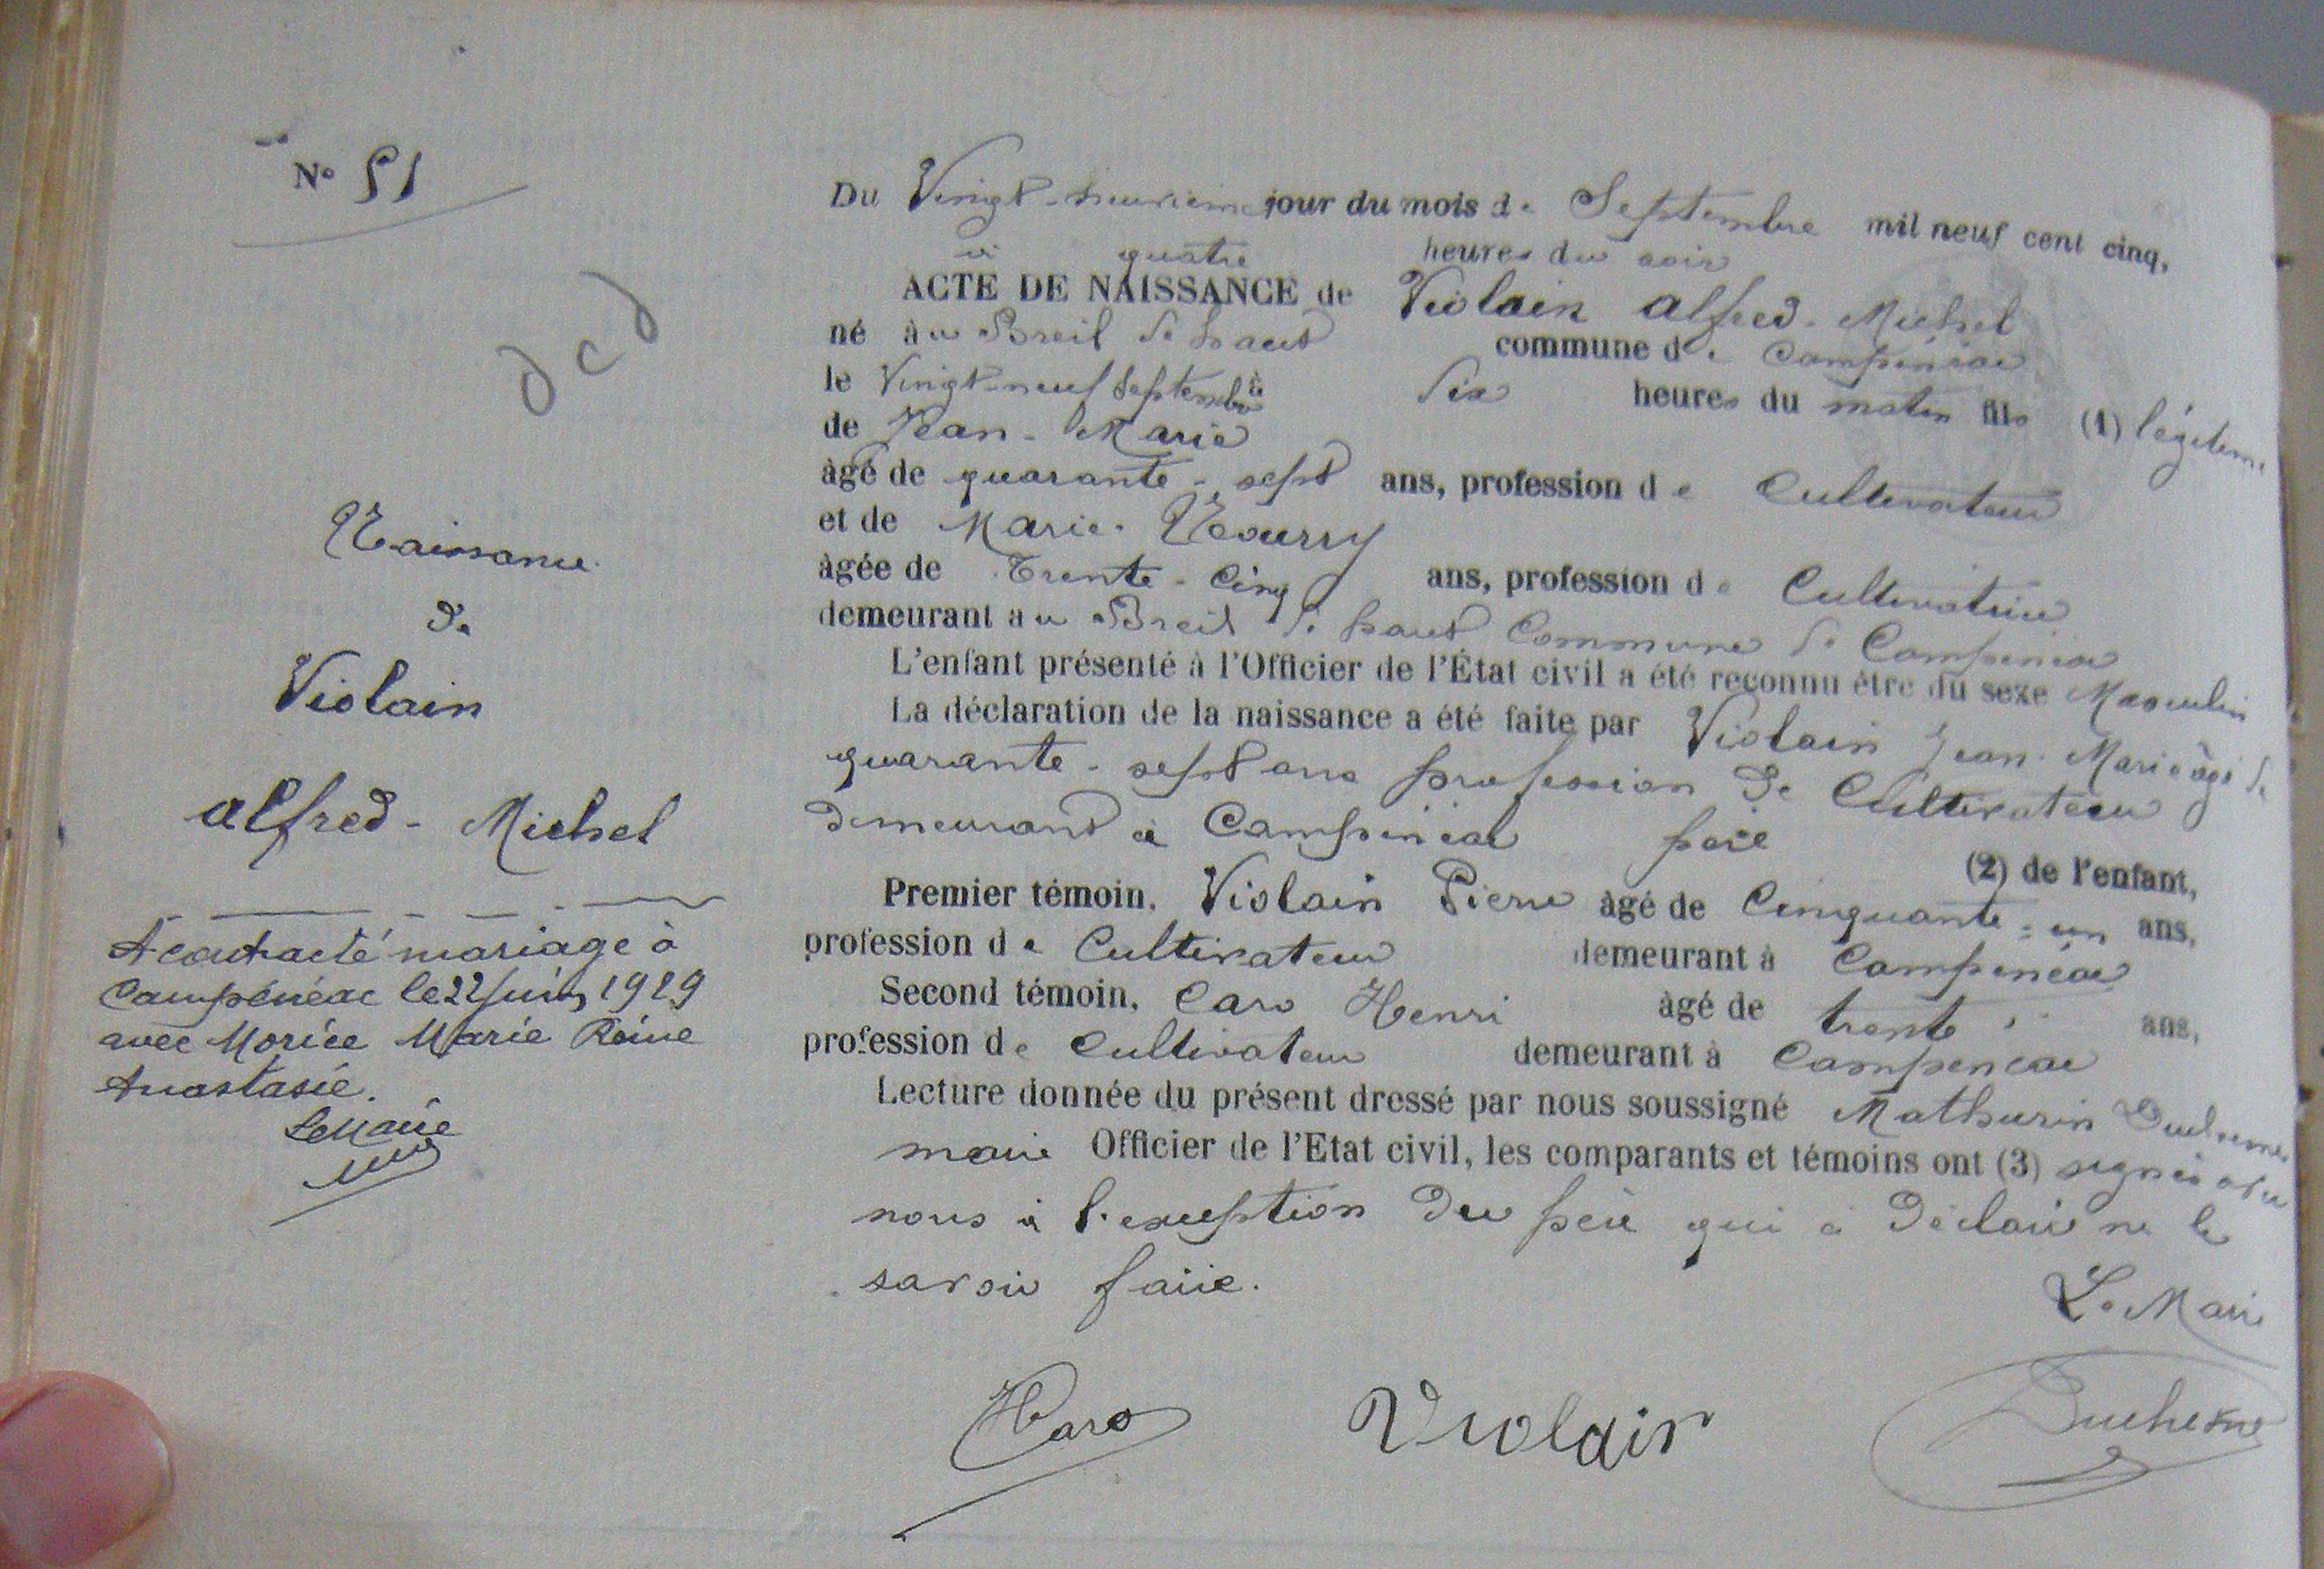 N° 51
dcd
Naissance
de
Violain
Alfred - Michel
A contracté mariage à
Campénéac le 22 Juin 1929
avec Morice Marie Reine
Anastasie.
Le Maire
Du Vingt-neuvième jour du mois de Septembre mil neuf cent cinq,
à quatre heures du soir
ACTE DE NAISSANCE de Violain Alfred - Michel
né à au Breil de haut commune de Campénéac
le Vingt-neuf Septembre à Six heures du matin fils (1) légitime
de Jean - Marie
âgé de quarante - sept ans, profession de Cultivateur
et de Marie -
âgée de Trente - Cinq ans, profession de Cultivatrice
demeurant au Breil de haut Commune de Campénéac
L'enfant présenté à l'Officier de l'État civil a été reconnu être du sexe Masculin
La déclaration de la naissance a été faite par Violain Jean - Marie âgé de
quarante - sept ans profession de Cultivateur
demeurant à Campénéac père (2) de l'enfant,
Premier témoin, Violain Pierre âgé de Cinquante - un ans,
profession de Cultivateur demeurant à Campénéac
Second témoin, Caro Henri âgé de trente ans,
profession de Cultivateur demeurant à Campénéac
Lecture donnée du présent dressé par nous soussigné Mathurin Duchesne
maire Officier de l'Etat civil, les comparants et témoins ont (3) signé avec
nous à l'exception du père qui a déclaré ne le
savoir faire.
Le Maire
HCaro Violain Duchesne